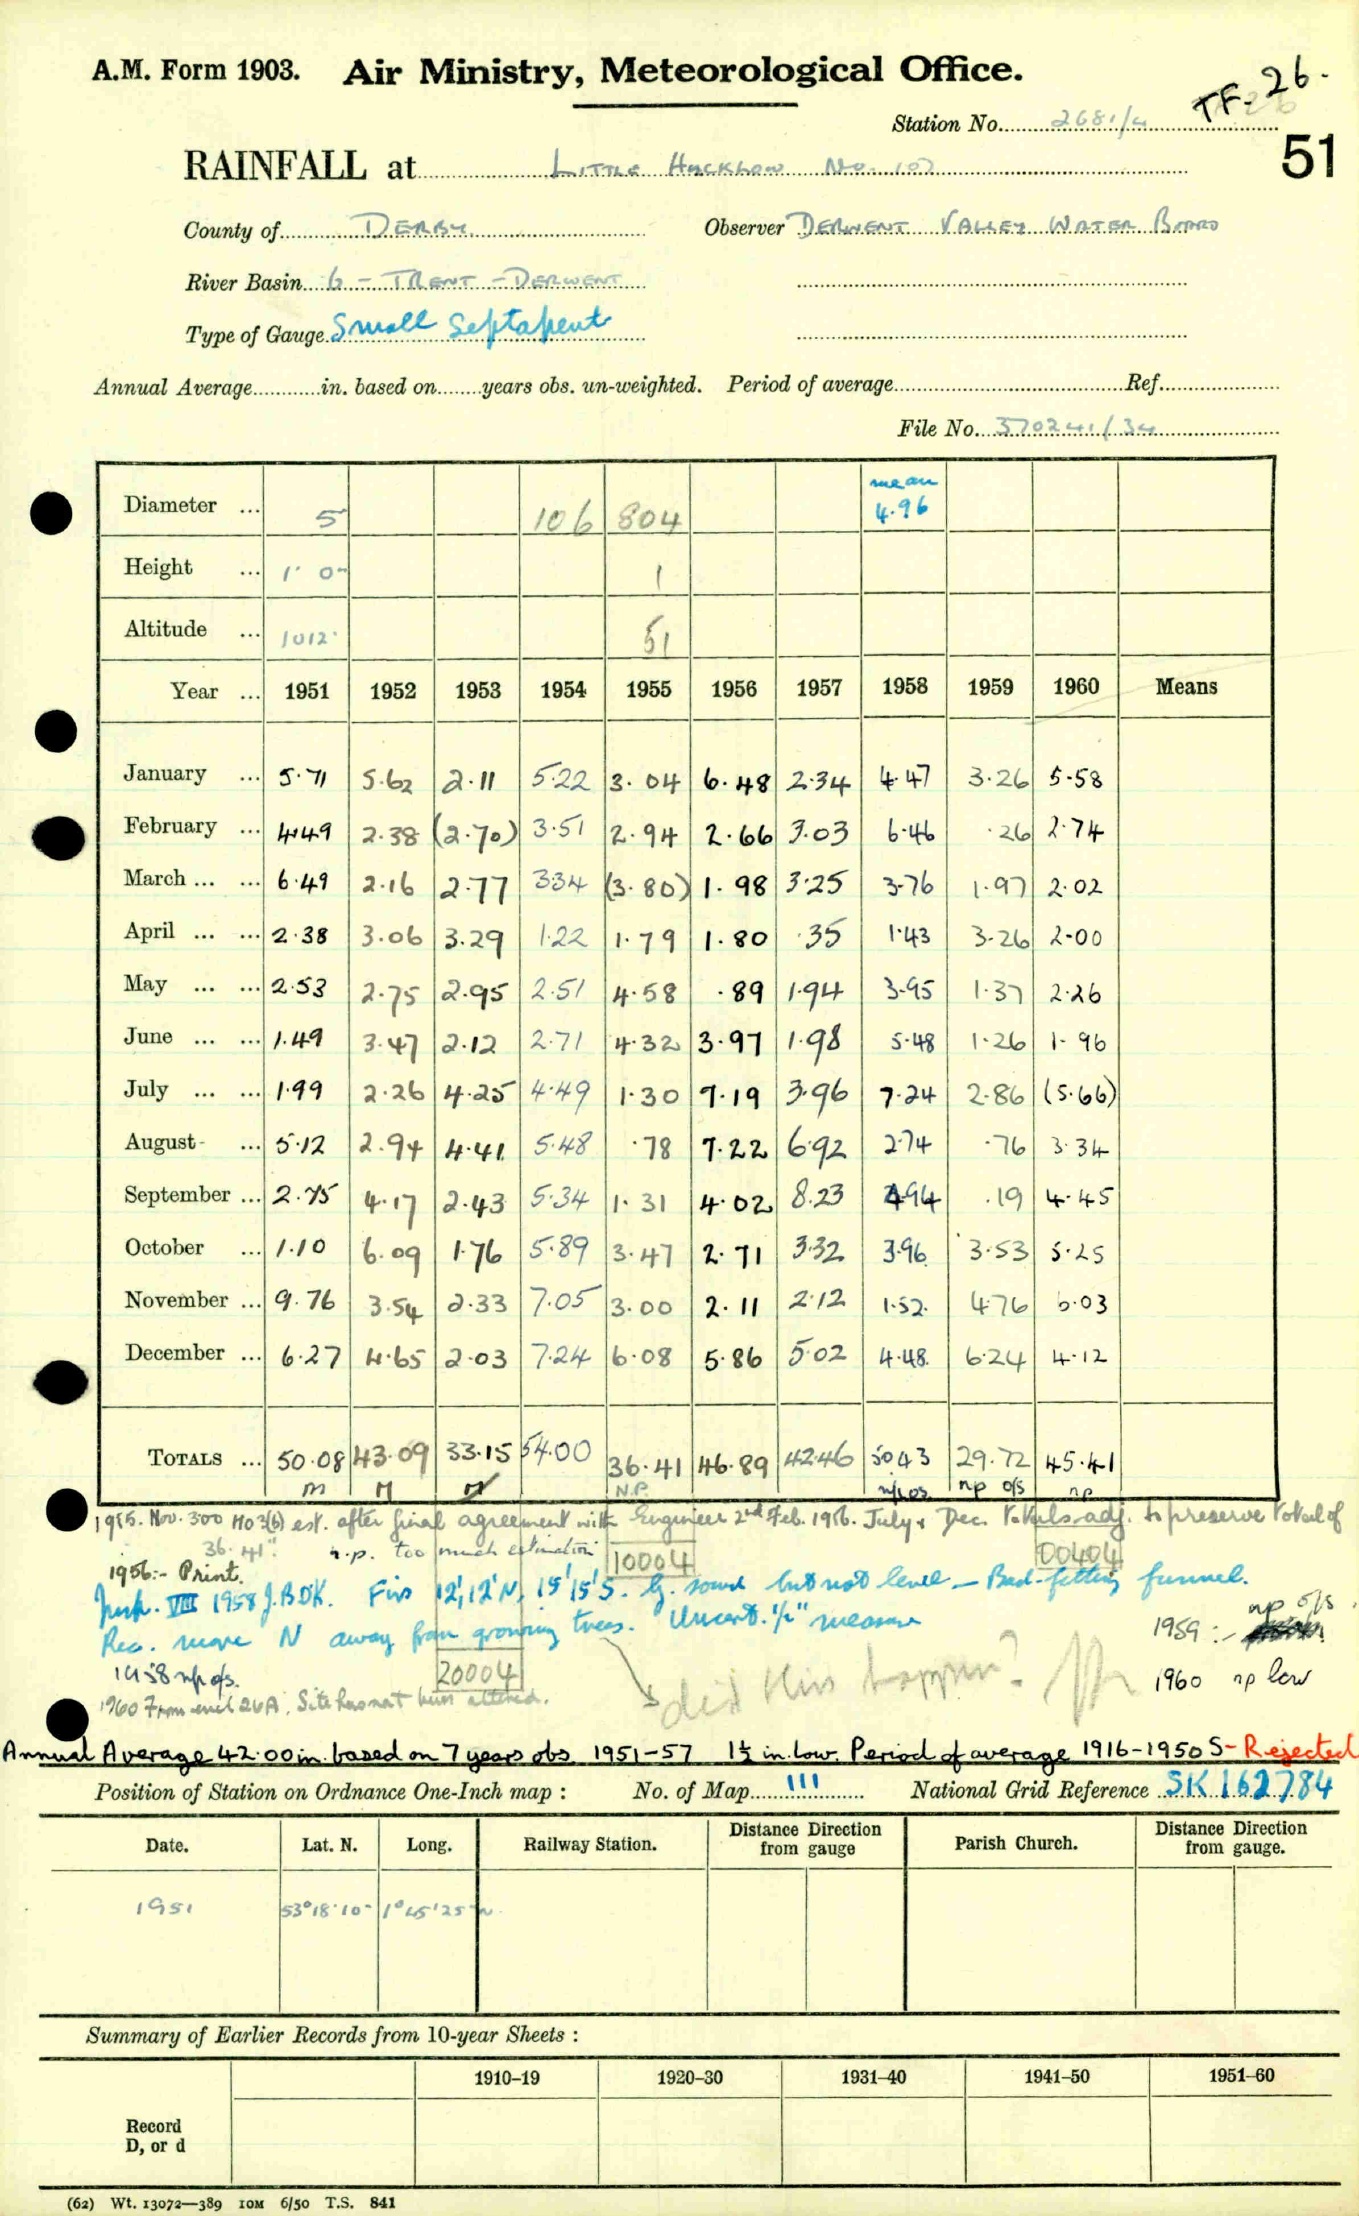 A.M. Form 1903. Air Ministry, Meteorological Office.
TF-26.
Station No. 2681/4
51
RAINFALL at LITTLE HUCKLOW No. 107
County of DERBY Observer DERWENT VALLEY WATER BOARD
River Basin 6 - TRENT - DERWENT
Type of Gauge Small Septapent
Annual Average in. based on years obs. un-weighted. Period of average Ref.
File No. 370241/34
Diameter ... 5 106 804 mean 4.96
Height ... 1' 0" 1
Altitude ... 1012 51
Year ... 1951 1952 1953 1954 1955 1956 1957 1958 1959 1960 Means
January ... 5.71 5.62 2.11 5.22 3.04 6.48 2.34 4.47 3.26 5.58
February ... 4.49 2.38 (2.70) 3.51 2.94 2.66 3.03 6.46 .26 2.74
March ... ... 6.49 2.16 2.77 3.34 (3.80) 1.98 3.25 3.76 1.97 2.02
April ... ... 2.38 3.06 3.29 1.22 1.79 1.80 .35 1.43 3.26 2.00
May ... ... 2.53 2.75 2.95 2.51 4.58 .89 1.94 3.95 1.37 2.26
June ... ... 1.49 3.47 2.12 2.71 4.32 3.97 1.98 5.48 1.26 1.96
July ... ... 1.99 2.26 4.25 4.49 1.30 7.19 3.96 7.24 2.86 (5.66)
August ... 5.12 2.94 4.41 5.48 .78 7.22 6.92 2.74 .76 3.34
September ... 2.75 4.17 2.43 5.34 1.31 4.02 8.23 4.94 .19 4.45
October ... 1.10 6.09 1.76 5.89 3.47 2.71 3.32 3.96 3.53 5.25
November ... 9.76 3.54 2.33 7.05 3.00 2.11 2.12 1.52 4.76 6.03
December ... 6.27 4.65 2.03 7.24 6.08 5.86 5.02 4.48 6.24 4.12
TOTALS ... 50.08 43.09 33.15 54.00 36.41 46.89 42.46 50.43 29.72 45.41
m M M N.P. np os np o/s np
1955. Nov. 300 MO3(b) est. after final agreement with Engineer 2nd Feb. 1956. July & Dec. totals adj. to preserve total of
36.41". n.p. too much estimation 10004 00404
1956:- Print.
Insp. VIII 1958 J.BDK. Firs 12', 12' N, 15' 15' S. G. sound but not level - Bad-fitting funnel.
Rec. move N away from growing trees. Uncert. 1/2" measure
1959:- np o/s
1958 np o/s. 20004 did this happen?
1960 np low
1960 From encl 26A, Site has not been altered.
Annual Average 42.00 in. based on 7 years obs 1951-57 1½ in. low. Period of average 1916-1950 S - Rejected
Position of Station on Ordnance One-Inch map : No. of Map 111 National Grid Reference SK 162784
Date. Lat. N. Long. Railway Station. Distance Direction from gauge Parish Church. Distance Direction from gauge.
1951 53° 18' 10" 1° 45' 25" W.
Summary of Earlier Records from 10-year Sheets :
1910–19 1920–30 1931–40 1941–50 1951–60
Record
D, or d
(62) Wt. 13072—389 IOM 6/50 T.S. 841